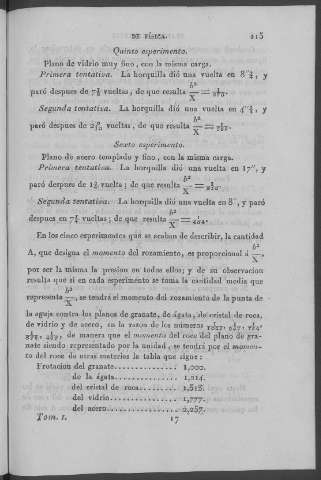 DE FÍSICA. 215
Quinto esperimento.
Plano de vidrio muy fino, con la misma carga.
Primera tentativa. La horquilla dió una vuelta en 8″ , y
paró despues de vueltas, de que resulta b²/X =
Segunda tentativa. La horquilla dió una vuelta en 4″ , y
paró despues de vueltas, de que resulta b²/X =
Sexto esperimento.
Plano de acero templado y fino, con la misma carga.
Primera tentativa. La horquilla dió una vuelta en 17″, y
paró derpues de vueltas; de que resulta b²/X =
Segunda tentativa. La horquilla dió una vuelta en 8″, y paró
despues en vueltas; de que resulta b²/X =
En los cinco esperimentos que se acaban de describir, la cantidad
A, que designa el momento del rozamiento, es proporcional á b²/X,
por ser la misma la presion en todos ellos; y de su observacion
resulta que si en cada esperimento se toma la cantidad media que
representa b²/X, se tendrá el momento del rozamiento de la punta de
la aguja contra los planos de granate, de ágata, de cristal de roca,
de vidrio y de acero, en la razon de los números
de manera que el momento del roce del plano de gra-
nate siendo representado por la unidad, se tendrá por el momen-
to del roce de otras materias la tabla que sigue:
Frotacion del granate................ 1,000.
de la ágata................ 1,214.
del cristal de roca............ 1,313.
del vidrio................ 1,777.
del acero................ 2,257.
Tom. I. 17